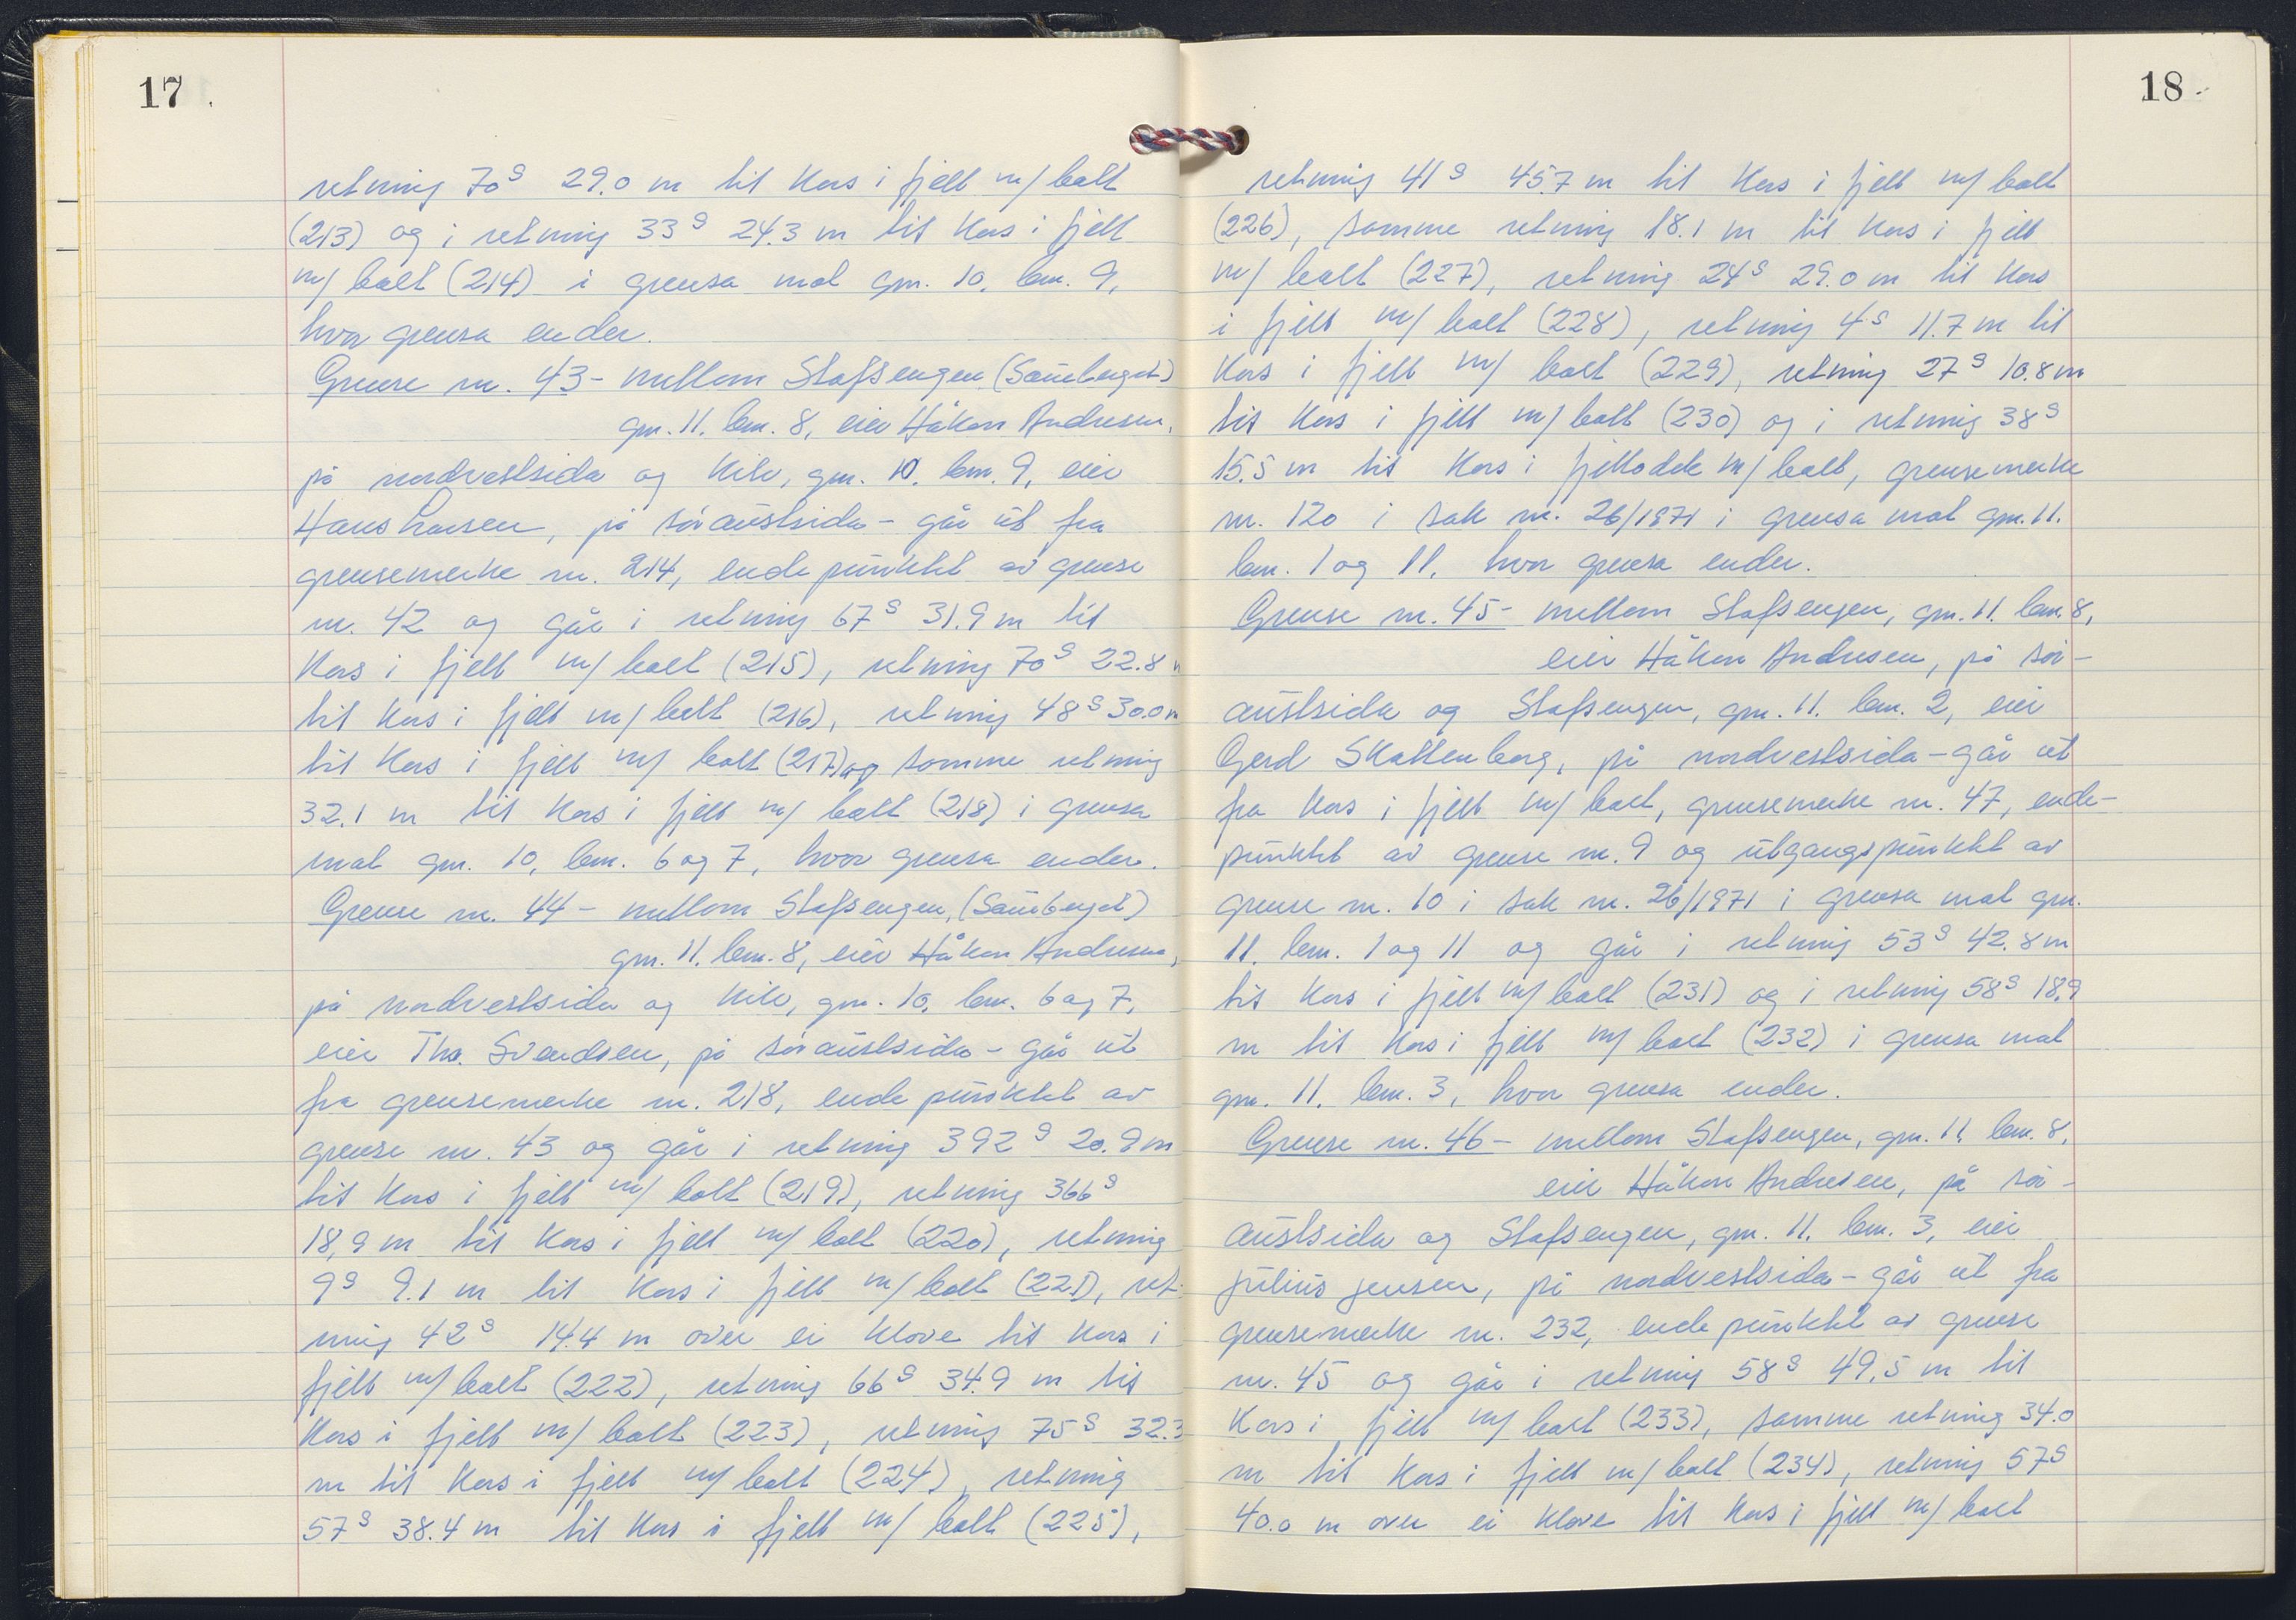 17
retning 70g 29.0 m til kors i fjell m/ bolt
(213) og i retning 33g 24.3 m til kors i fjell
m/ bolt (214) i grensa mot gnr. 10, bnr. 9,
hvor grensa ender.
Grense nr. 43 - mellom Stafsengen (Sauberget)
gnr. 11. bnr. 8, eier Håkon Andresen,
på nordvestsida og Kilv, gnr. 10. bnr. 9, eier
Hans Larsen, på søraustsida - går ut fra
grensemerke nr. 214, endepunktet av grense
nr. 42 og går i retning 67g 31.9 m til
kors i fjell m/ bolt (215), retning 70g 22.8 m
til kors i fjell m/ bolt (216), retning 48g 30.0 m
til kors i fjell m/ bolt (217) og samme retning
32.1 m til kors i fjell m/ bolt (218) i grensa
mot gnr. 10, bnr. 6 og 7, hvor grensa ender.
Grense nr. 44 - mellom Stafsengen, (Sauberget)
gnr. 11. bnr. 8, eier Håkon Andresen,
på nordvestsida og Kilv, gnr. 10, bnr. 6 og 7,
eier Tho. Svendsen, på søraustsida - går ut
fra grensemerke nr. 218, endepunktet av
grense nr. 43 og går i retning 392g 20.9 m
til kors i fjell m/ bolt (219), retning 366g
18,9 m til kors i fjell m/ bolt (220), retning
9g 9.1 m til kors i fjell m/ bolt (221), ret-
ning 42g 14.4 m over ei klove til kors i
fjell m/ bolt (222), retning 66g 34.9 m til
kors i fjell m/ bolt (223), retning 75g 32.3
m til kors i fjell m/ bolt (224), retning
57g 38.4 m til kors i fjell m/ bolt (225),
18
retning 41g 45.7 m til kors i fjell m/ bolt
(226), samme retning 18.1 m til kors i fjell
m/ bolt (227), retning 24g 29.0 m til kors
i fjell m/ bolt (228), retning 4g 11.7 m til
kors i fjell m/ bolt (229), retning 27g 10.8 m
til kors i fjell m/ bolt (230) og i retning 38g
15.5 m til kors i fjellodde m/ bolt, grensemerke
nr. 120 i sak nr. 26/1971 i grensa mot gnr. 11.
bnr. 1 og 11, hvor grensa ender.
Grense nr. 45 - mellom Stafsengen, gnr. 11. bnr. 8,
eier Håkon Andresen, på sør-
austsida og Stafsengen, gnr. 11. bnr. 2, eier
Gerd Skattenborg, på nordvestsida - går ut
fra kors i fjell m/ bolt, grensemerke nr. 47, ende-
punktet av grense nr. 9 og utgangspunktet av
grense nr. 10 i sak nr. 26/1971 i grensa mot gnr.
11. bnr. 1 og 11 og går i retning 53g 42.8 m
til kors i fjell m/ bolt (231) og i retning 58g 18.9
m til kors i fjell m/ bolt (232) i grensa mot
gnr. 11. bnr. 3, hvor grensa ender.
Grense nr. 46 - mellom Stafsengen, gnr. 11, bnr. 8,
eier Håkon Andresen, på sør-
austsida og Stafsengen, gnr. 11. bnr. 3, eier
Julius Jensen, på nordvestsida - går ut fra
grensemerke nr. 232, endepunktet av grense
nr. 45 og går i retning 58g 49,5 m til
kors i fjell m/ bolt (233), samme retning 34.0
m til kors i fjell m/ bolt (234), retning 57g
40.0 m over ei klove til kors i fjell m/ bolt